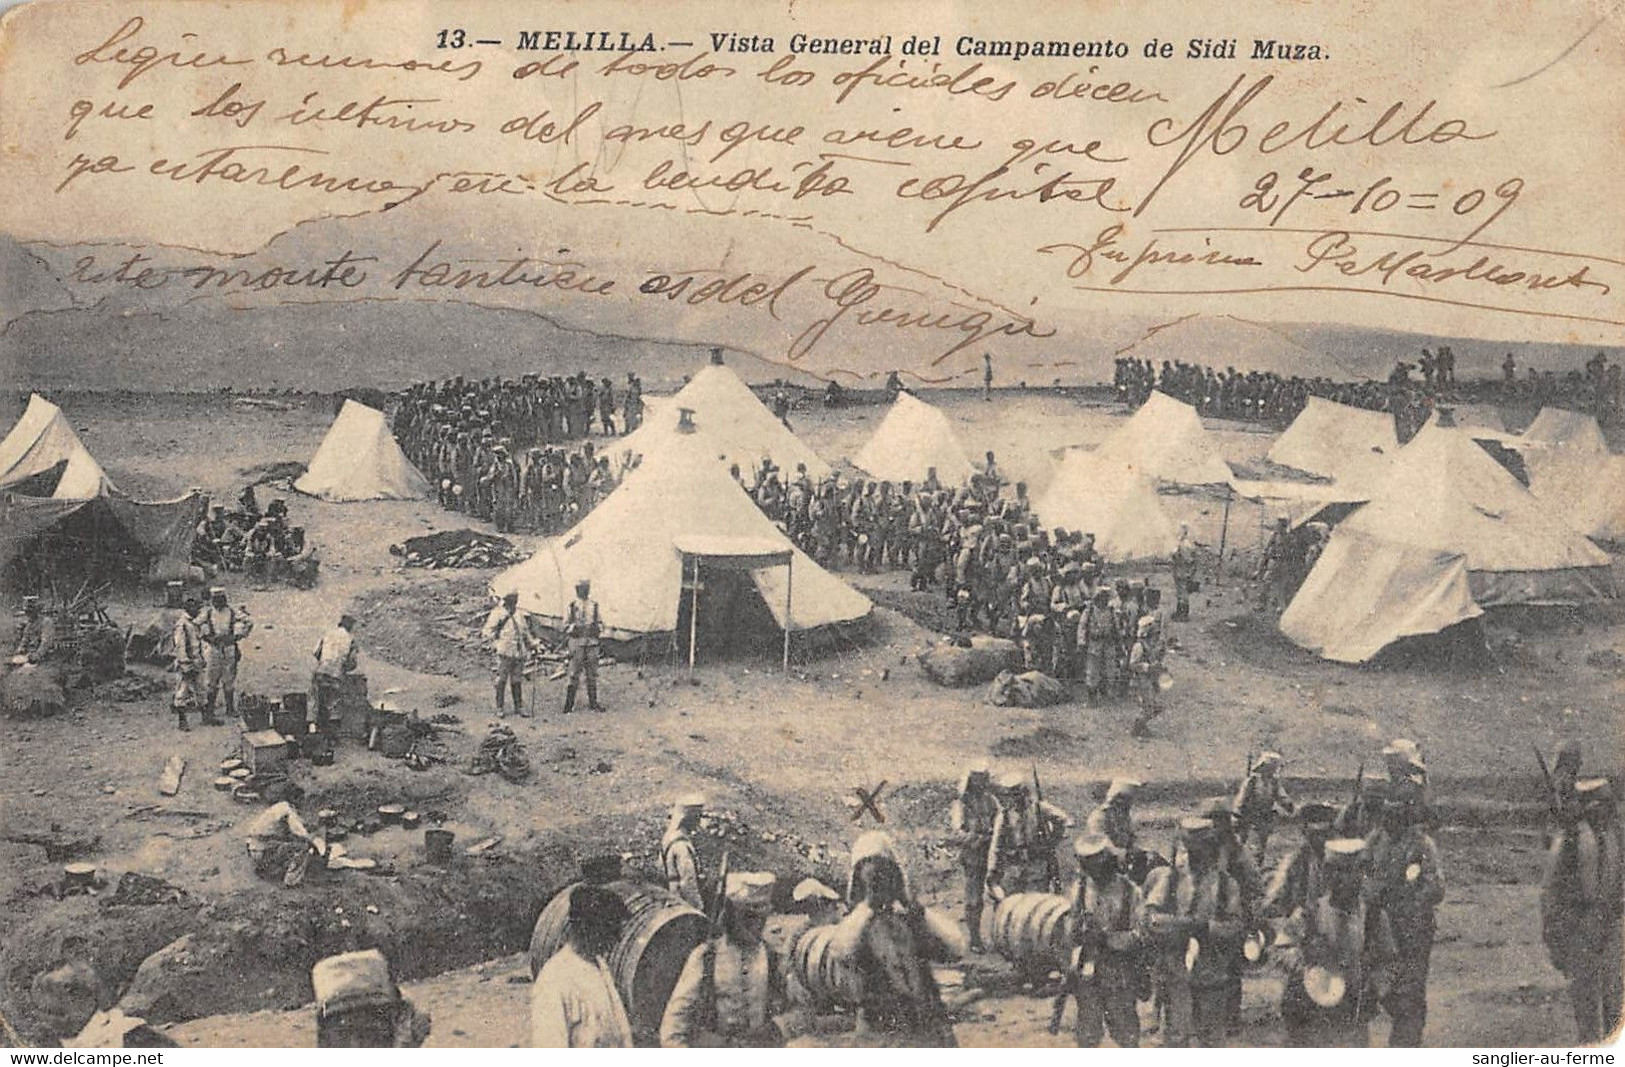 13.— MELILLA.— Vista General del Campamento de Sidi Muza.
Segun rumores de todos los oficiales dicen
que los últimos del mes que viene que
ya estaremos en la bendita capital
Melilla
27-10=09
Su prima
este monte tambien es del Gurugú
X
www.delcampe.net
sanglier-au-ferme